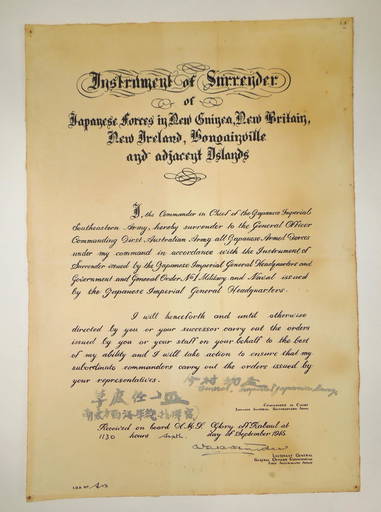 Instrument of Surrender
of
Japanese Forces in New Guinea, New Britain,
New Ireland, Bougainville
and adjacent Islands
I, the Commander in Chief of the Japanese Imperial
Southeastern Army, hereby surrender to the General Officer
Commanding First Australian Army all Japanese Armed Forces
under my command in accordance with the Instrument of
Surrender issued by the Japanese Imperial General Headquarters and
Government and General Order, No 1, Military and Naval issued
by the Japanese Imperial General Headquarters.
I will henceforth and until otherwise
directed by you or your successor carry out the orders
issued by you or your staff on your behalf to the best
of my ability and I will take action to ensure that my
subordinate commanders carry out the orders issued by
your representatives.
今村 均
General, Imperial Japanese Army
Commander in Chief
Japanese Imperial Southeastern Army
草鹿任一
Received on board H.M.S. Glory off Rabaul at
1130 hours sixth day of September 1945
Lieutenant General
General Officer Commanding
First Australian Army